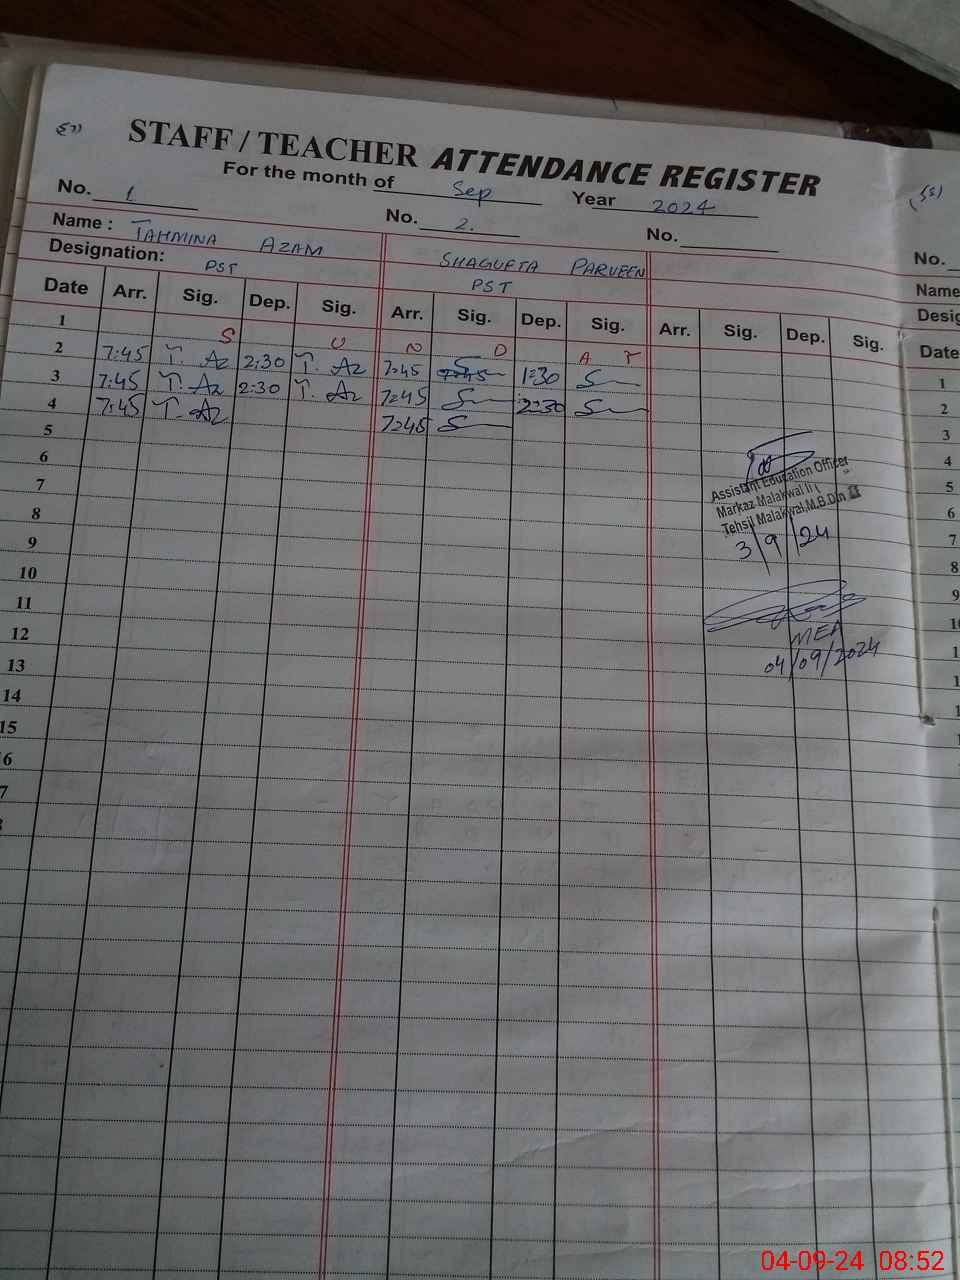 STAFF / TEACHER ATTENDANCE REGISTER
For the month of Sep Year 2024
No. 1 No. 2. No.
Name : TAHMINA AZAM SHAGUFTA PARVEEN
Designation: PST PST
Date Arr. Sig. Dep. Sig. Arr. Sig. Dep. Sig. Arr. Sig. Dep. Sig.
1 S U N D A Y
2 7:45 T. Az 2:30 T. Az 7:45 7:45 1:30
3 7:45 T. Az 2:30 T. Az 7:45 2:30
4 7:45 T. Az 7:45
5
6
7
8
9
10
11
12
13
14
15
16
Assistant Education Officer
Markaz Malakwal II
Tehsil Malakwal, M.B.Din
3/9/24
MEA
04/09/2024
No.
Name
Desig
Date
1
2
3
4
5
6
7
8
9
04-09-24 08:52